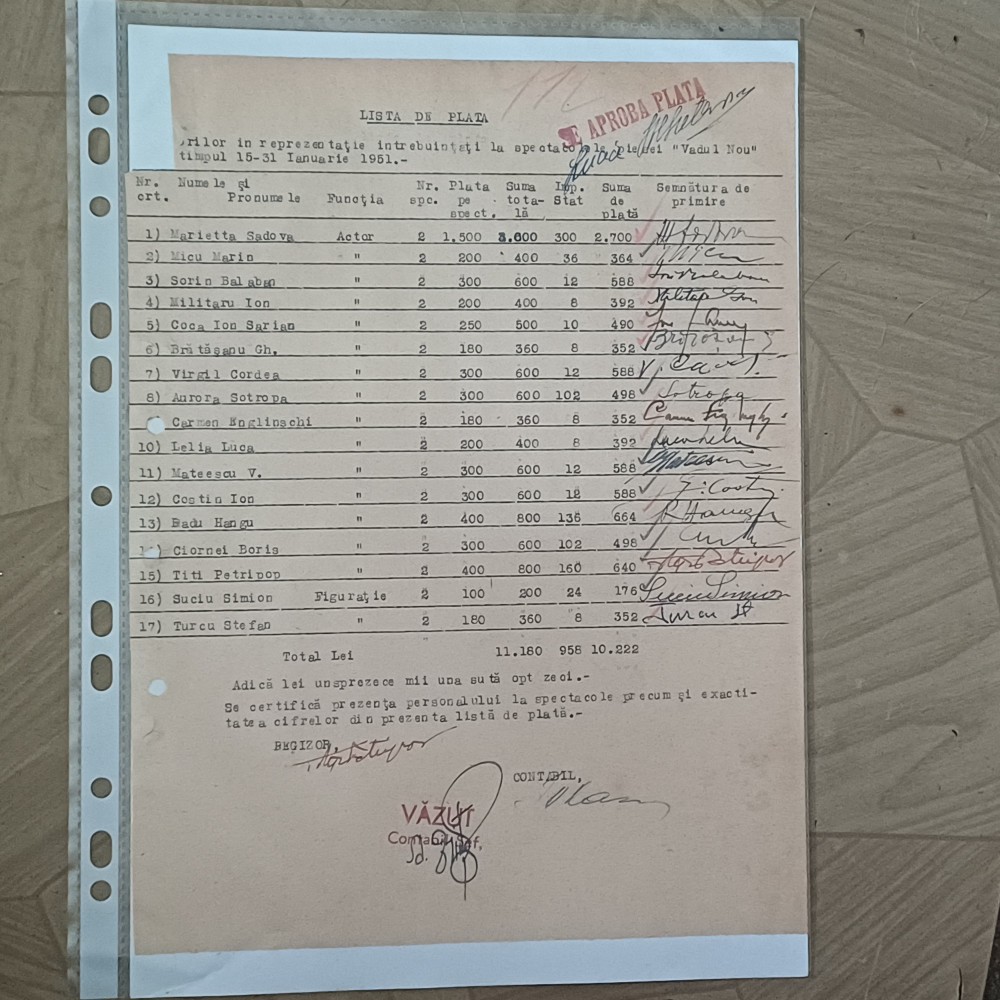 LISTA DE PLATA
SE APROBA PLATA
rilor in reprezentație intrebuințați la spectacolele piesei "Vadul Nou"
timpul 15-31 Ianuarie 1951.-
Nr. Numele și Nr. Plata Suma Imp. Suma Semnătura de
crt. Pronumele Funcția spc. pe tota- Stat de primire
spect. lă plată
1) Marietta Sadova Actor 2 1.500 3.000 300 2.700
2) Micu Marin " 2 200 400 36 364
3) Sorin Balaban " 2 300 600 12 588
4) Militaru Ion " 2 200 400 8 392
5) Coca Ion Sarian " 2 250 500 10 490
6) Brătășanu Gh. " 2 180 360 8 352
7) Virgil Cordea " 2 300 600 12 588
8) Aurora Sotropa " 2 300 600 102 498
Carmen Englinschi " 2 180 360 8 352
10) Lelia Luca " 2 200 400 8 392
11) Mateescu V. " 2 300 600 12 588
12) Costin Ion " 2 300 600 12 588
13) Radu Hangu " 2 400 800 136 664
Ciornei Boris " 2 300 600 102 498
15) Titi Petripop " 2 400 800 160 640
16) Suciu Simion Figurație 2 100 200 24 176 Suciu Simion
17) Turcu Stefan " 2 180 360 8 352 Turcu St
Total Lei 11.180 958 10.222
Adică lei unsprezece mii una sută opt zeci.-
Se certifică prezența personalului la spectacole precum și exacti-
tatea cifrelor din prezenta listă de plată.-
REGIZOR,
CONTABIL,
VĂZUT
Contabil Șef,